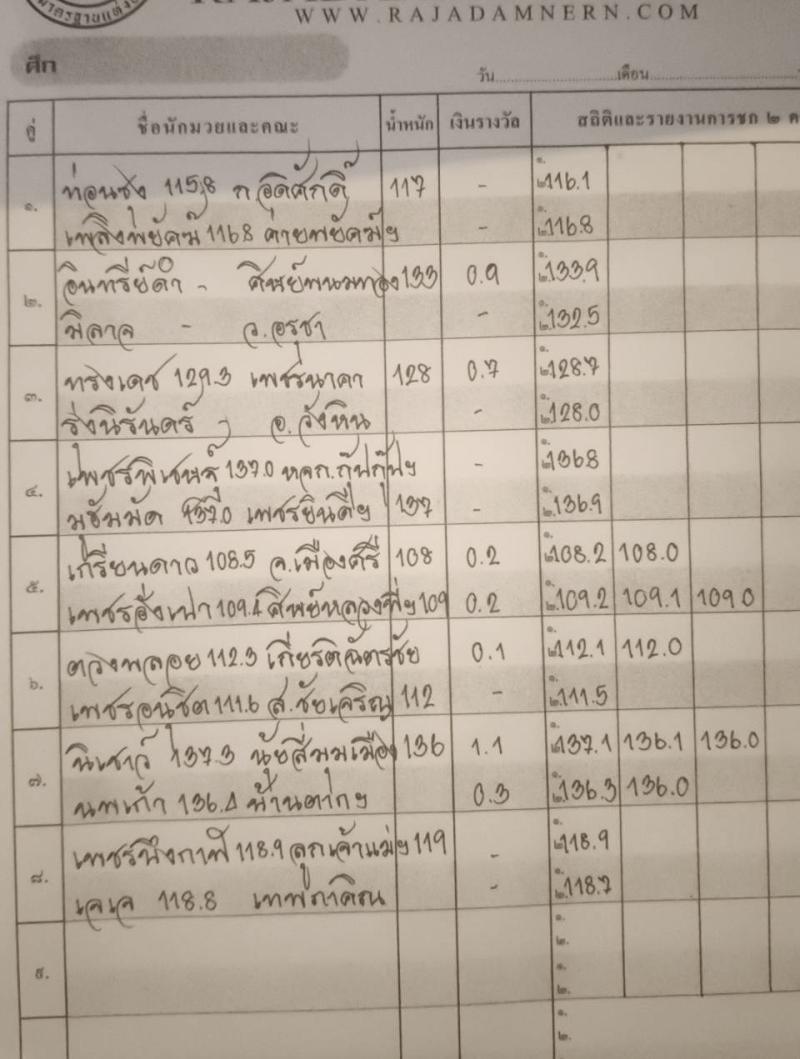 WWW.RAJADAMNERN.COM
ศึก
วัน เดือน
คู่ ชื่อนักมวยและคณะ น้ำหนัก เงินรางวัล สถิติและรายงานการชก ๒ ค
๑. ท่อนซุง 115.8 ก.อดิศักดิ์ 117 - ๑. ๒. 116.1
เพลิงพยัคฆ์ 116.8 ค่ายพยัคฆ์ฯ - ๑. ๒. 116.8
๒. อินทรีย์ดำ - ศิษย์พนมทอง 133 0.9 ๑. ๒. 133.9
มิลาล - ว.อรุชา - ๑. ๒. 132.5
๓. ทรงเดช 129.3 เพชรนาคา 128 0.7 ๑. ๒. 128.7
รุ่งนิรันดร์ - อ.วังหิน - ๑. ๒. 128.0
๔. เพชรพิเชษฐ์ 137.0 หจก.กุ๊ปกุ๊ปฯ - ๑. ๒. 136.8
137.0 เพชรยินดีฯ 137 - ๑. ๒. 136.9
๕. เกรียนดาว 108.5 จ.เมืองศรี 108 0.2 ๑. ๒. 108.2 108.0
109.4 ศิษย์หลวงพี่ฯ 109 0.2 ๑. ๒. 109.2 109.1 109.0
๖. ดวงพลอย 112.3 เกียรติฉัตรชัย 0.1 ๑. ๒. 112.1 112.0
เพชรอนุชิต 111.6 ส.ชัยเจริญ 112 - ๑. ๒. 111.5
๗. นิเชาว์ 137.3 นุ้ยสี่มุมเมือง 136 1.1 ๑. ๒. 137.1 136.1 136.0
นพเก้า 136.4 บ้านตากฯ 0.3 ๑. ๒. 136.3 136.0
๘. 118.9 ลูกเจ้าแม่ฯ 119 - ๑. ๒. 118.9
เจเจ 118.8 เทพภาคิณ - ๑. ๒. 118.7
๙. ๑.
๒.
๑.
๒.
๑.
๒.